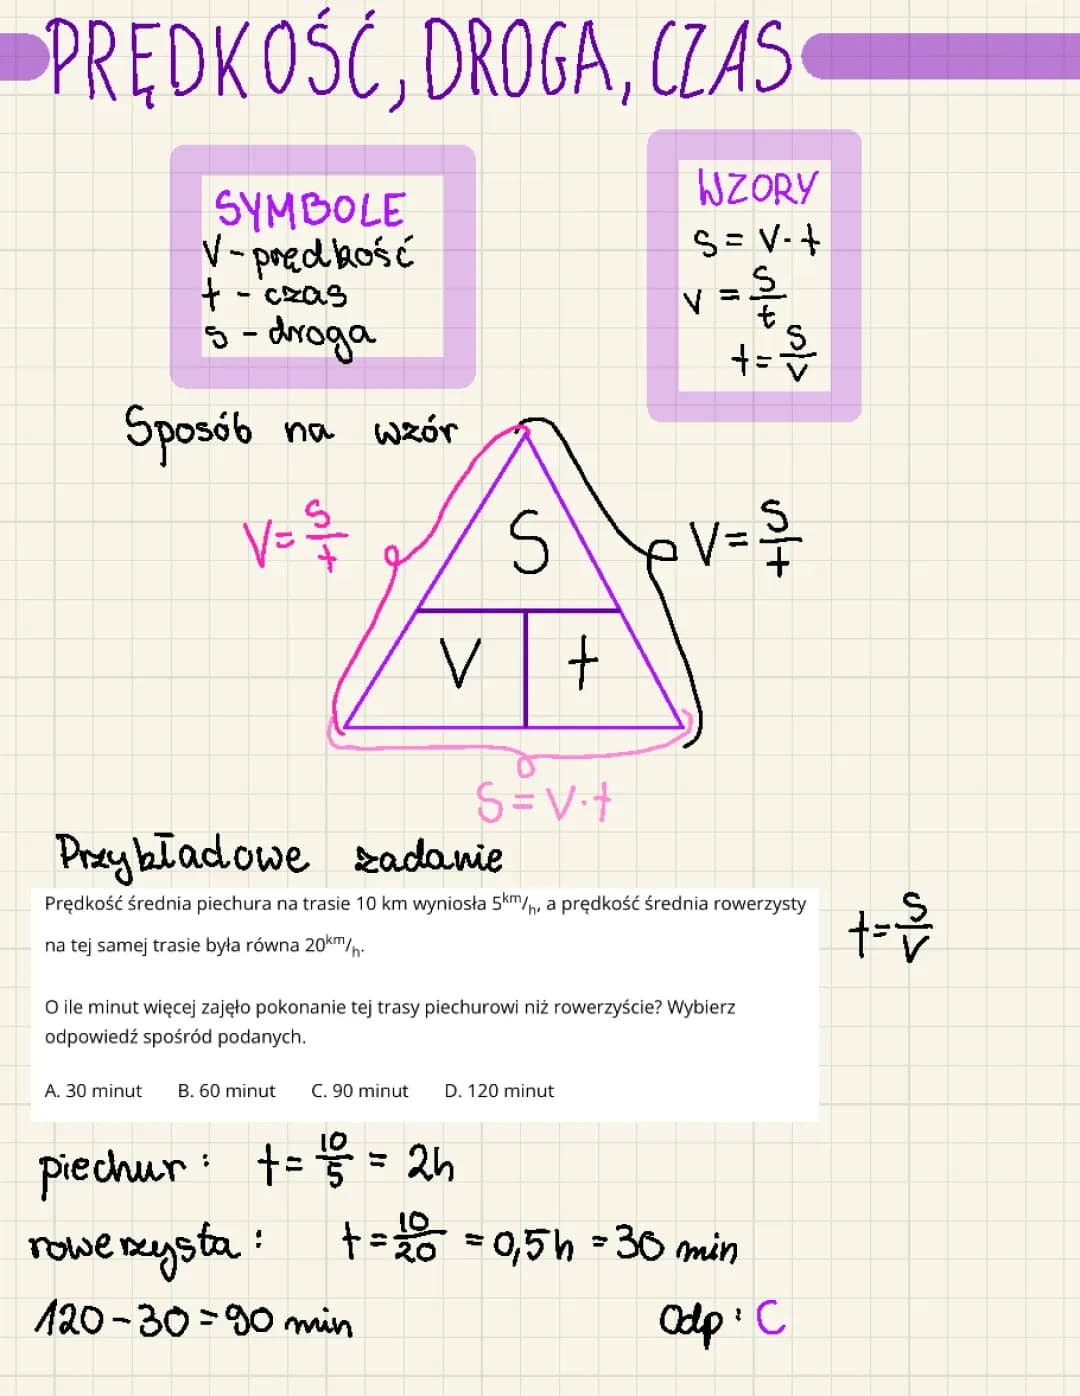 PRĘDKOŚĆ, DROGA, CZAS
SYMBOLE
V - prędkość
t - czas
s - droga
WZORY
s = V·t
v = s/t
t = s/v
Sposób na wzór
V = s/t
S
V = s/t
V
t
S = V·t
Przykładowe zadanie
Prędkość średnia piechura na trasie 10 km wyniosła 5km/h, a prędkość średnia rowerzysty
na tej samej trasie była równa 20km/h.
t = s/v
O ile minut więcej zajęło pokonanie tej trasy piechurowi niż rowerzyście? Wybierz
odpowiedź spośród podanych.
A. 30 minut B. 60 minut C. 90 minut D. 120 minut
piechur: t = 10/5 = 2h
rowerzysta: t = 10/20 = 0,5h = 30 min
120 - 30 = 90 min
Odp: C